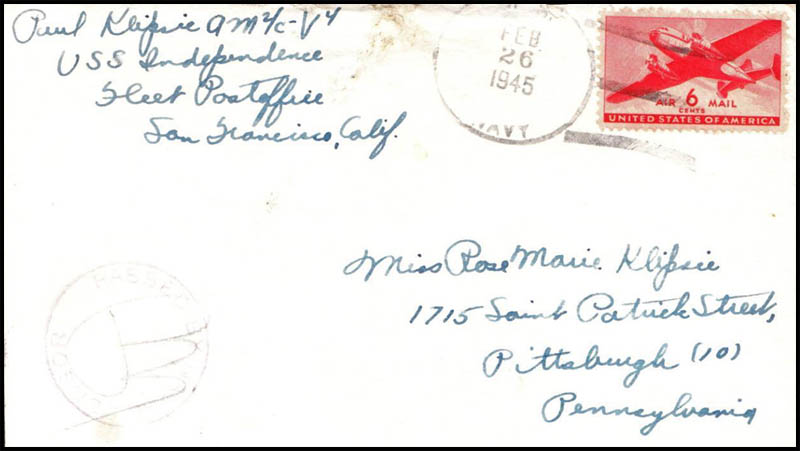 Paul Klipsie AM2/c-V4
USS Independence
Fleet Postoffice
San Francisco, Calif.
FEB
26
1945
NAVY
AIR 6 MAIL
CENTS
UNITED STATES OF AMERICA
Miss Rose Marie Klipsie
1715 Saint Patrick Street,
Pittsburgh (10)
Pennsylvania
PASSED BY